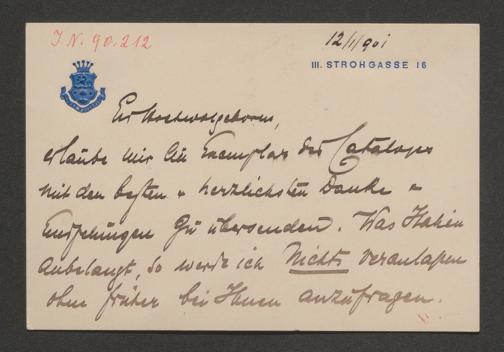 I. N. 90.212
12/1/901
III. STROHGASSE 16
Ew Hochwolgeboren,
erlaube mir ein Exemplar des Cataloges
mit den besten u herzlichsten Danke u
Empfehlungen zu übersenden. Was Italien
anbelangt, so werde ich Nichts veranlassen
ohne früher bei Ihnen anzufragen.